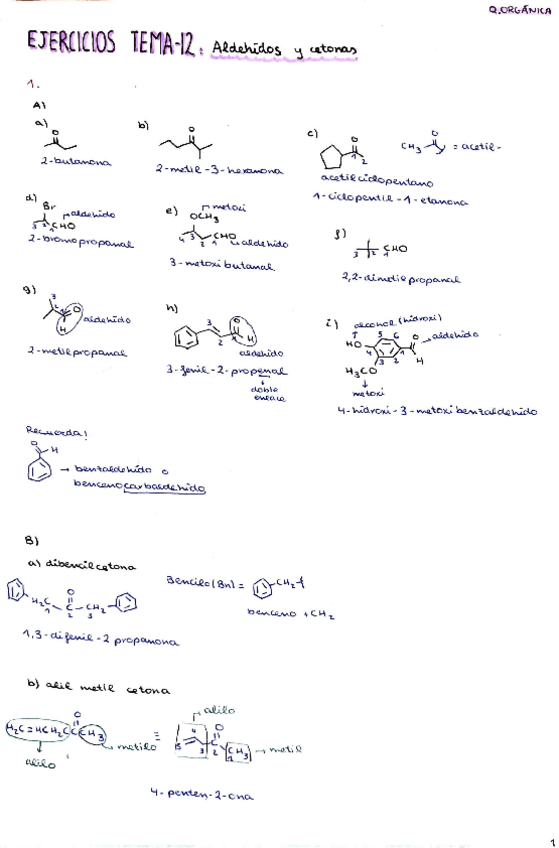 Q.ORGÁNICA
EJERCICIOS TEMA-12: Aldehídos y cetonas
1.
A)
a)
O
2-butanona
b)
O
2-metil-3-hexanona
c)
O
1 2
CH3 O = acetil-
acetilciclopentano
1-ciclopentil-1-etanona
d)
Br
aldehído
3 2 1 CHO
2-bromopropanal
e)
metoxi
OCH3
4 3 2 1 CHO
aldehído
3-metoxibutanal
f)
3 2 1 CHO
2,2-dimetilpropanal
g)
3
2 1 O
H
aldehído
2-metilpropanal
h)
3 O
2 1 H
aldehído
3-fenil-2-propenal
doble
enlace
i)
alcohol (hidroxi)
aldehído
HO 5 6 O
4 1 H
3 2
H3CO
metoxi
4-hidroxi-3-metoxibenzaldehído
Recuerda!
O H
→ benzaldehído o
bencenocarbaldehído
B)
a) dibencilcetona
O
H2C - C - CH2
1 2 3
Bencilo (Bn) = CH2
benceno + CH2
1,3-difenil-2 propanona
b) alil metil cetona
O
H2C=HCH2CCCH3
metilo
alilo
≡
alilo
4 O
5 3 C 2 CH3 1
metil
4-penten-2-ona
1